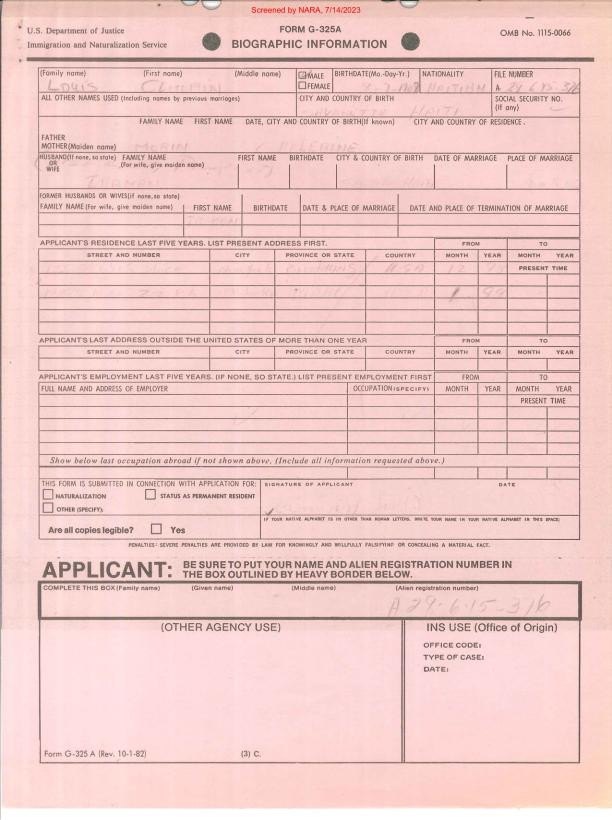 Screened by NARA, 7/14/2023
U.S. Department of Justice
Immigration and Naturalization Service
FORM G-325A
BIOGRAPHIC INFORMATION
OMB No. 1115-0066
(Family name) (First name) (Middle name) MALE FEMALE BIRTHDATE(Mo.-Day-Yr.) NATIONALITY FILE NUMBER
Louis HAITIAN A
ALL OTHER NAMES USED (Including names by previous marriages) CITY AND COUNTRY OF BIRTH SOCIAL SECURITY NO. (If any)
HAITI
FAMILY NAME FIRST NAME DATE, CITY AND COUNTRY OF BIRTH(If known) CITY AND COUNTRY OF RESIDENCE.
FATHER
MOTHER(Maiden name) MORIN
HUSBAND(If none, so state) OR WIFE FAMILY NAME (For wife, give maiden name) FIRST NAME BIRTHDATE CITY & COUNTRY OF BIRTH DATE OF MARRIAGE PLACE OF MARRIAGE
FORMER HUSBANDS OR WIVES(if none,so state)
FAMILY NAME (For wife, give maiden name) FIRST NAME BIRTHDATE DATE & PLACE OF MARRIAGE DATE AND PLACE OF TERMINATION OF MARRIAGE
APPLICANT'S RESIDENCE LAST FIVE YEARS. LIST PRESENT ADDRESS FIRST. FROM TO
STREET AND NUMBER CITY PROVINCE OR STATE COUNTRY MONTH YEAR MONTH YEAR
USA 12 PRESENT TIME
APPLICANT'S LAST ADDRESS OUTSIDE THE UNITED STATES OF MORE THAN ONE YEAR FROM TO
STREET AND NUMBER CITY PROVINCE OR STATE COUNTRY MONTH YEAR MONTH YEAR
APPLICANT'S EMPLOYMENT LAST FIVE YEARS. (IF NONE, SO STATE.) LIST PRESENT EMPLOYMENT FIRST FROM TO
FULL NAME AND ADDRESS OF EMPLOYER OCCUPATION(SPECIFY) MONTH YEAR MONTH YEAR
PRESENT TIME
Show below last occupation abroad if not shown above. (Include all information requested above.)
THIS FORM IS SUBMITTED IN CONNECTION WITH APPLICATION FOR: SIGNATURE OF APPLICANT DATE
NATURALIZATION STATUS AS PERMANENT RESIDENT
OTHER (SPECIFY):
IF YOUR NATIVE ALPHABET IS IN OTHER THAN ROMAN LETTERS, WRITE YOUR NAME IN YOUR NATIVE ALPHABET IN THIS SPACE:
Are all copies legible? Yes
PENALTIES: SEVERE PENALTIES ARE PROVIDED BY LAW FOR KNOWINGLY AND WILLFULLY FALSIFYING OR CONCEALING A MATERIAL FACT.
APPLICANT: BE SURE TO PUT YOUR NAME AND ALIEN REGISTRATION NUMBER IN
THE BOX OUTLINED BY HEAVY BORDER BELOW.
COMPLETE THIS BOX (Family name) (Given name) (Middle name) (Alien registration number)
A 29-615-316
(OTHER AGENCY USE) INS USE (Office of Origin)
OFFICE CODE:
TYPE OF CASE:
DATE:
Form G-325 A (Rev. 10-1-82) (3) C.